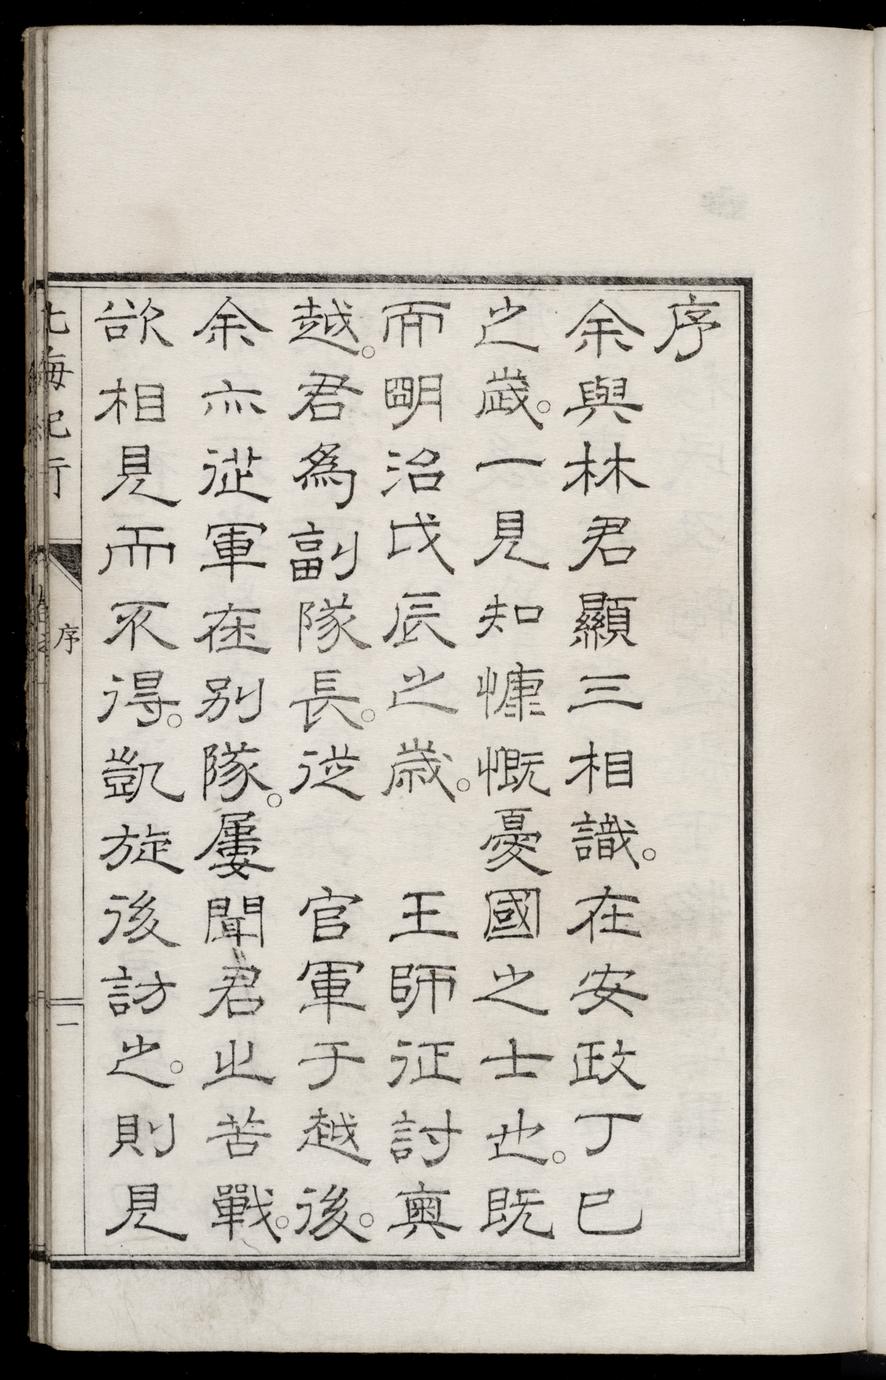 序
余與林君顯三相識。在安政丁巳
之歲。一見知慷慨憂國之士也。既
而明治戊辰之歲。　王師征討奧
越。君爲副隊長。從　官軍于越後。
余亦從軍在別隊。屢聞君之苦戰。
欲相見而不得。凱旋後訪之。則見
北海紀行
序
一